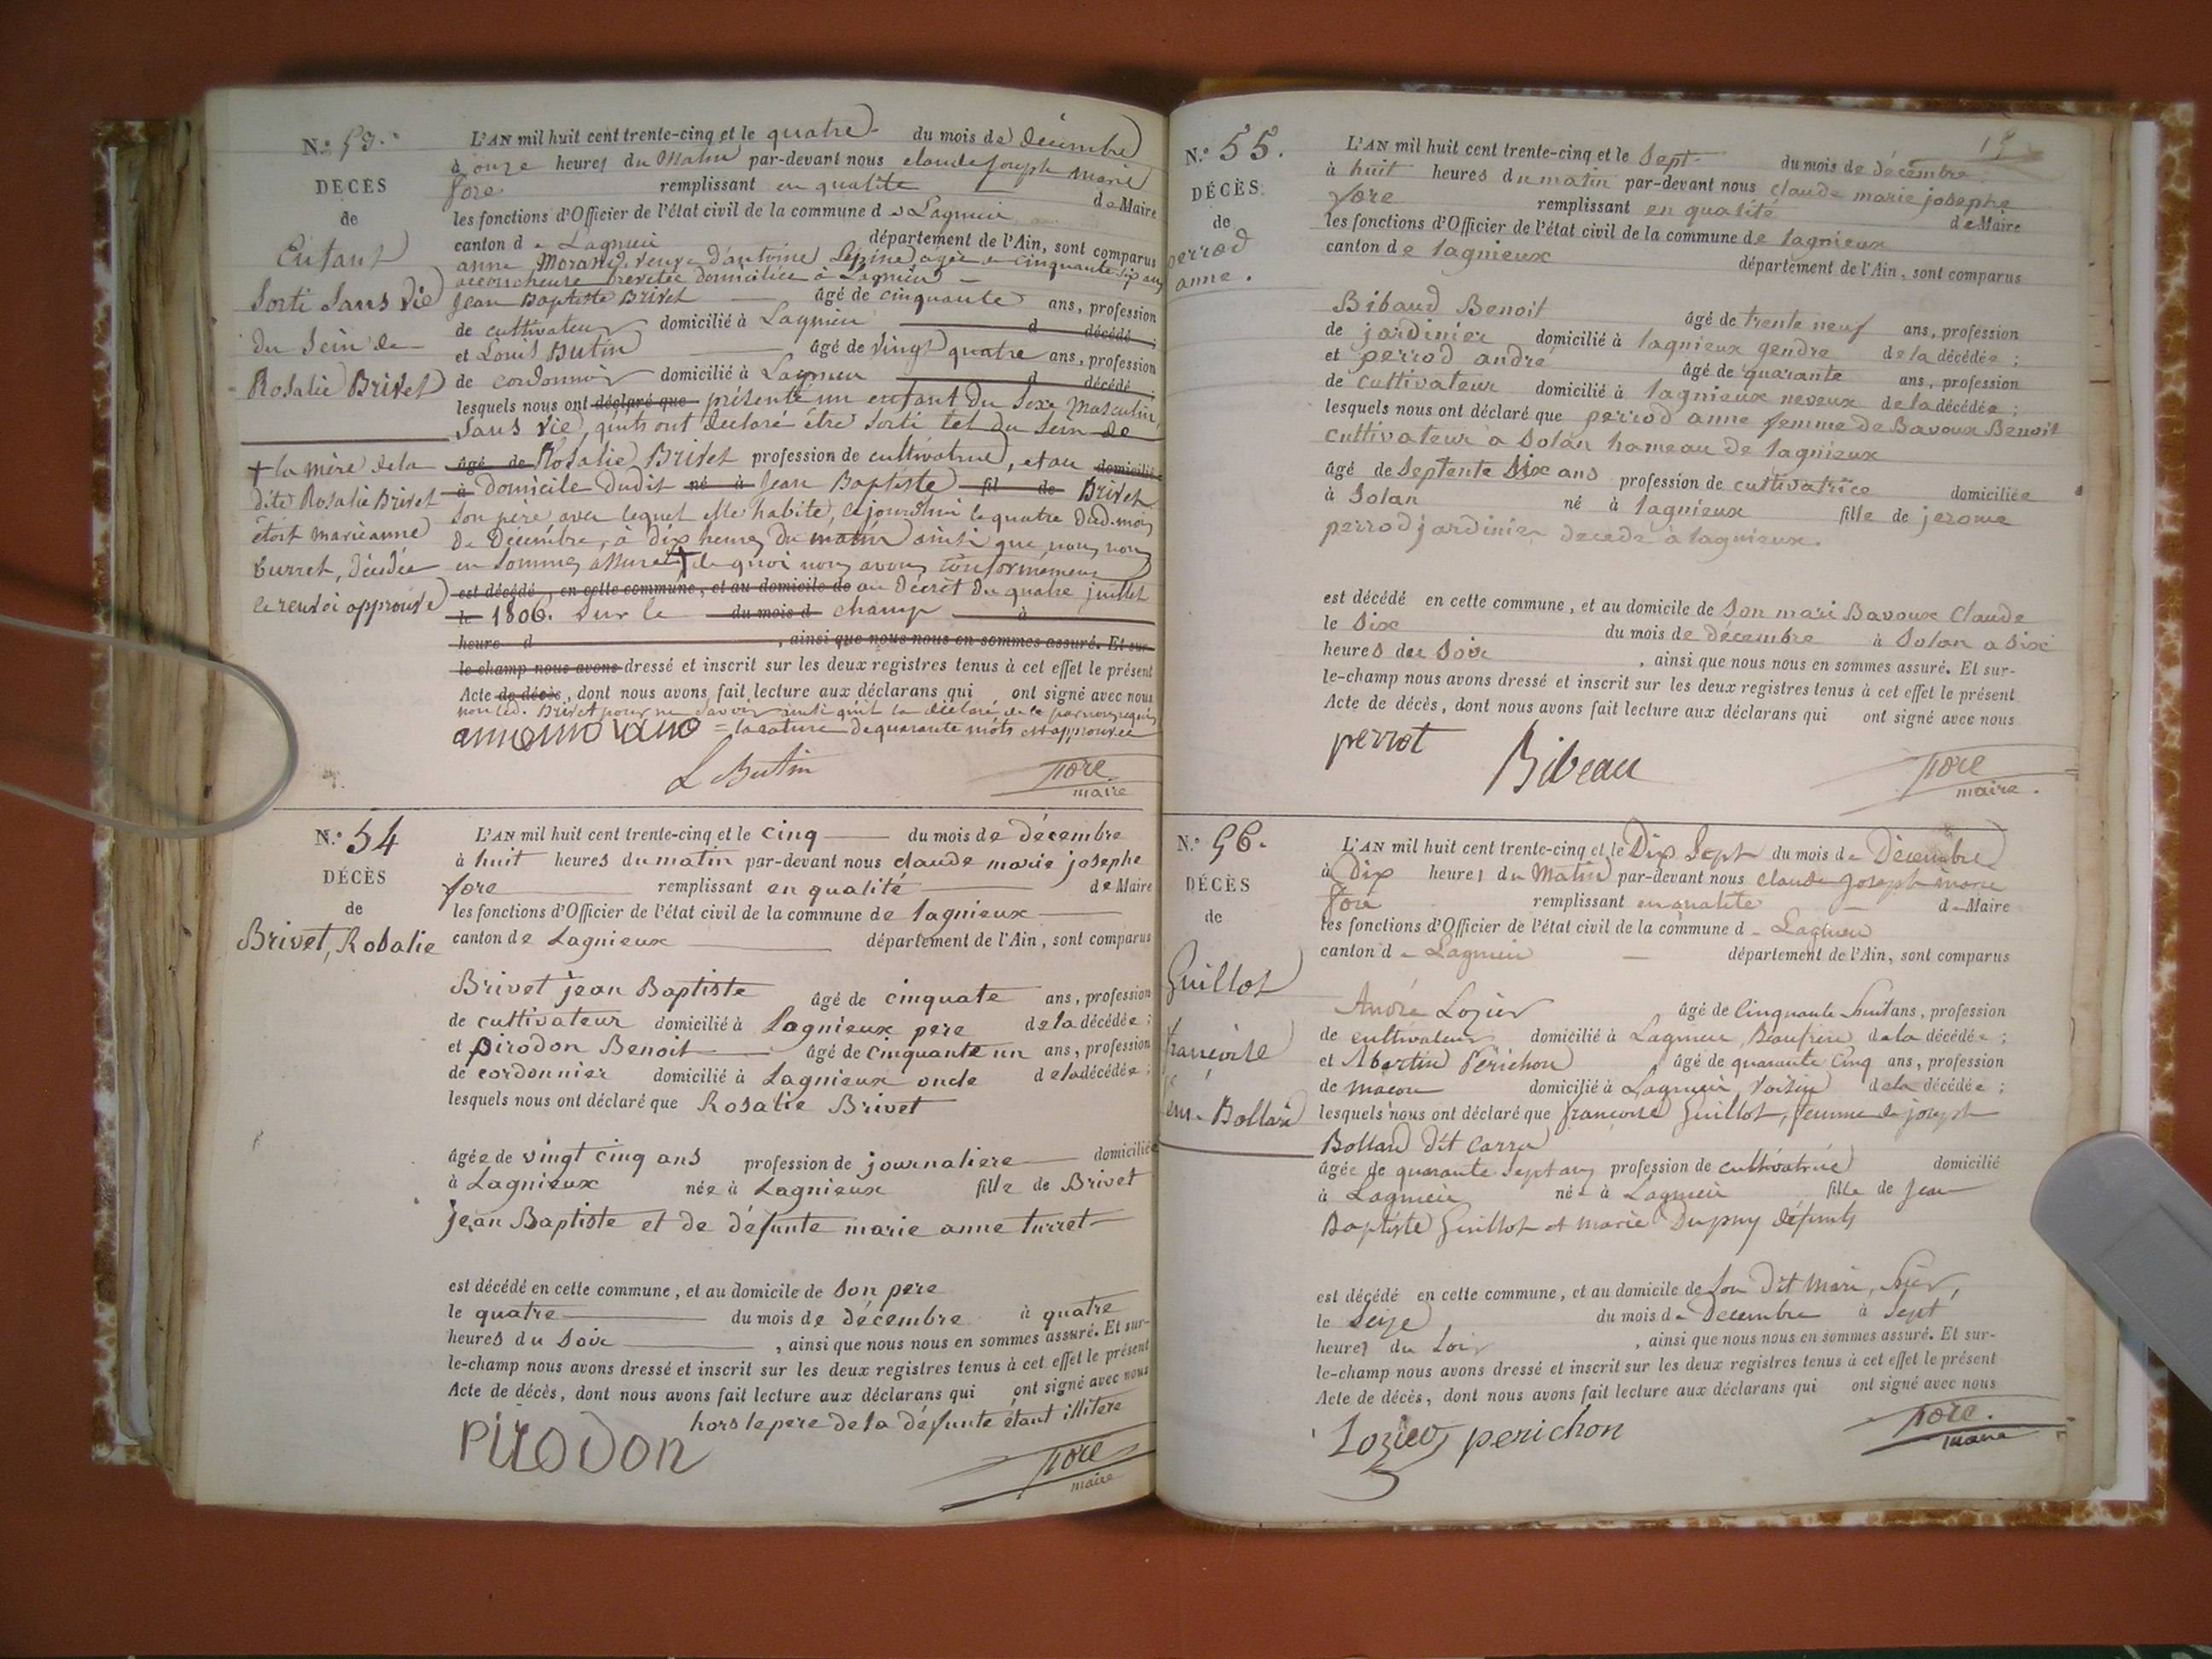 N.° 53.
DÉCÈS
de
Enfant
Sorti Sans Vie
du Sein de
Rosalie Brivet
+ la mère de la
dite Rosalie Brivet
étoit marie anne
turret, décédée
le renvoi approuvé
L'AN mil huit cent trente-cinq et le quatre du mois de décembre
à onze heures du Matin par-devant nous claude Joseph marie
fore remplissant en qualité de Maire
les fonctions d'Officier de l'état civil de la commune de Lagnieu
canton de Lagnieu département de l'Ain, sont comparus
anne Morand, veuve d'antoine Lépine, agée de cinquante six ans
accoucheuse brevetée domiciliée à Lagnieu
Jean Baptiste Brivet âgé de cinquante ans, profession
de cultivateur domicilié à Lagnieu d décédé ;
et Louis Butin âgé de vingt quatre ans, profession
de cordonnier domicilié à Lagnieu d décédé ;
lesquels nous ont déclaré que présenté un enfant du Sexe Masculin
Sans Vie, qu'ils ont déclaré être Sorti tel du Sein de
âgé de Rosalie Brivet profession de cultivatrice, et au domicilié
à domicile dudit né à Jean Baptiste fil de Brivet
Son père avec lequel elle habite, cejourd'hui le quatre dud. mois
de Décembre, à dix heures du matin ainsi que nous nous
en Sommes assuré + de quoi nous avons conformément
est décédé, en cette commune, et au domicile de au Décrêt du quatre juillet
le 1806. Sur le du mois d champ à
heure d , ainsi que nous nous en sommes assuré. Et sur-
le champ nous avons dressé et inscrit sur les deux registres tenus à cet effet le présent
Acte de décès, dont nous avons fait lecture aux déclarans qui ont signé avec nous
non led. Brivet pour ne Savoir ainsi qu'il l'a déclaré de ce par nous requis
anne morand = la rature de quarante mots est approuvée
L Butin fore
maire
N.° 54
DÉCÈS
de
Brivet, Rosalie
L'AN mil huit cent trente-cinq et le cinq du mois de décembre
à huit heures du matin par-devant nous claude marie josephe
fore remplissant en qualité de Maire
les fonctions d'Officier de l'état civil de la commune de lagnieux
canton de Lagnieux département de l'Ain, sont comparus
Brivet jean Baptiste âgé de cinquate ans, profession
de cultivateur domicilié à Lagnieux pere de la décédée ;
et pirodon Benoit âgé de cinquante un ans, profession
de cordonnier domicilié à Lagnieux oncle de la décédée ;
lesquels nous ont déclaré que Rosalie Brivet
âgée de vingt cinq ans profession de journaliere domiciliée
à Lagnieux née à Lagnieux fille de Brivet
jean Baptiste et de défunte marie anne turret
est décédé en cette commune, et au domicile de Son pere
le quatre du mois de décembre à quatre
heures du Soir , ainsi que nous nous en sommes assuré. Et sur-
le-champ nous avons dressé et inscrit sur les deux registres tenus à cet effet le présent
Acte de décès, dont nous avons fait lecture aux déclarans qui ont signé avec nous
hors le pere de la défunte étant illitere
PIRODON fore
maire
15
N.° 55.
DÉCÈS
de
perrod
anne.
L'AN mil huit cent trente-cinq et le Sept du mois de décembre
à huit heures du matin par-devant nous claude marie josephe
fore remplissant en qualité de Maire
les fonctions d'Officier de l'état civil de la commune de lagnieux
canton de lagnieux département de l'Ain, sont comparus
Bibaud Benoit âgé de trente neuf ans, profession
de jardinier domicilié à lagnieux gendre de la décédée ;
et perrod andré âgé de quarante ans, profession
de cultivateur domicilié à lagnieux neveux de la décédée ;
lesquels nous ont déclaré que perrod anne femme de Bavoux Benoit
cultivateur a Solan hameau de lagnieux
âgé de Septente Six ans profession de cultivatrice domiciliée
à Solan né à lagnieux fille de jerome
perrod jardinier decede à lagnieux.
est décédé en cette commune, et au domicile de Son mari Bavoux Claude
le Six du mois de décembre à Solan a Six
heures du Soir , ainsi que nous nous en sommes assuré. Et sur-
le-champ nous avons dressé et inscrit sur les deux registres tenus à cet effet le présent
Acte de décès, dont nous avons fait lecture aux déclarans qui ont signé avec nous
perrot Bibeau fore
maire.
N.° 56.
DÉCÈS
de
Guillot
françoise
fe
Bollard
L'AN mil huit cent trente-cinq et le Dix Sept du mois de Décembre
à Dix heures du Matin par-devant nous Claude Joseph marie
fore remplissant en qualité de Maire
les fonctions d'Officier de l'état civil de la commune d Lagnieu
canton de Lagnieu département de l'Ain, sont comparus
André Lozier âgé de Cinquante huit ans, profession
de cultivateur domicilié à Lagnieu, Beaufrère de la décédée ;
et Martin Périchon âgé de quarante Cinq ans, profession
de Maçon domicilié à Lagnieu, Voisin de la décédée ;
lesquels nous ont déclaré que françoise Guillot, femme de joseph
Bollard dit Carra
âgée de quarante Sept ans profession de cultivatrice domicilié
à Lagnieu née à Lagnieu fille de Jean
Baptiste Guillot et marie Dupuy défunts
est décédé en cette commune, et au domicile de Son dit Mari,
le Seize du mois de Décembre à Sept
heures du Soir , ainsi que nous nous en sommes assuré. Et sur-
le-champ nous avons dressé et inscrit sur les deux registres tenus à cet effet le présent
Acte de décès, dont nous avons fait lecture aux déclarans qui ont signé avec nous
Lozier perichon fore.
maire